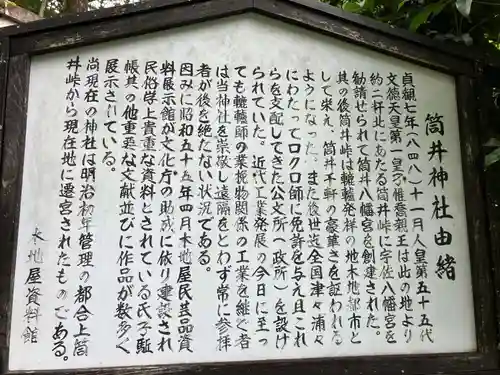 筒井神社由緒
貞観七年(八四八)十一月人皇第五十五代
文徳天皇第一皇子惟喬親王は此の地より
約二粁北にあたる筒井峠に宇佐八幡宮を
勧請せられて筒井八幡宮を創建された。
其の後筒井峠は轆轤発祥の地木地郷市と
して栄え、筒井千軒の豪華さを証われる
ようになった。また後世迄全国津々浦々
にわたってロクロ師に免許を与え且これ
らを支配してきた公文所(政所)を設け
られていた。近代工業発展の今日に至っ
ても轆轤師の業務物関係の工業を継ぐ者
は当神社を崇敬し遠隔をとわず常に参拝
者が後を絶たない状況である。
因みに昭和五十五年四月木地屋民芸品資
料展示館が文化庁の助成に依り建設され
民俗学上貴重な資料とされている氏子駈
帳其の他重要な文献並びに作品が数多く
展示されている。
尚現在の神社は明治初年管理の都合上筒
井峠から現在地に遷宮されたものである。
木地屋資料館